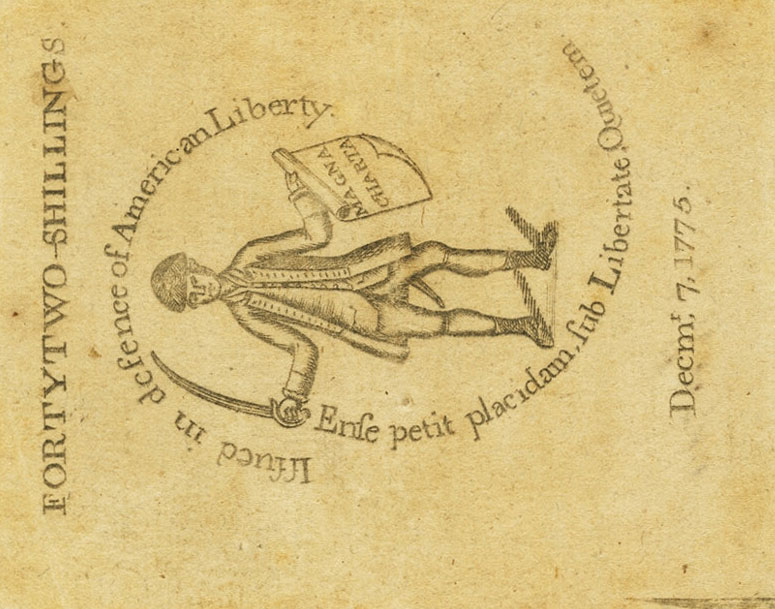 FORTYTWO SHILLINGS
Iſſued in defence of American Liberty.
MAGNA
CHARTA
Enſe petit placidam, ſub Libertate, Quietem
Decmr. 7, 1775.